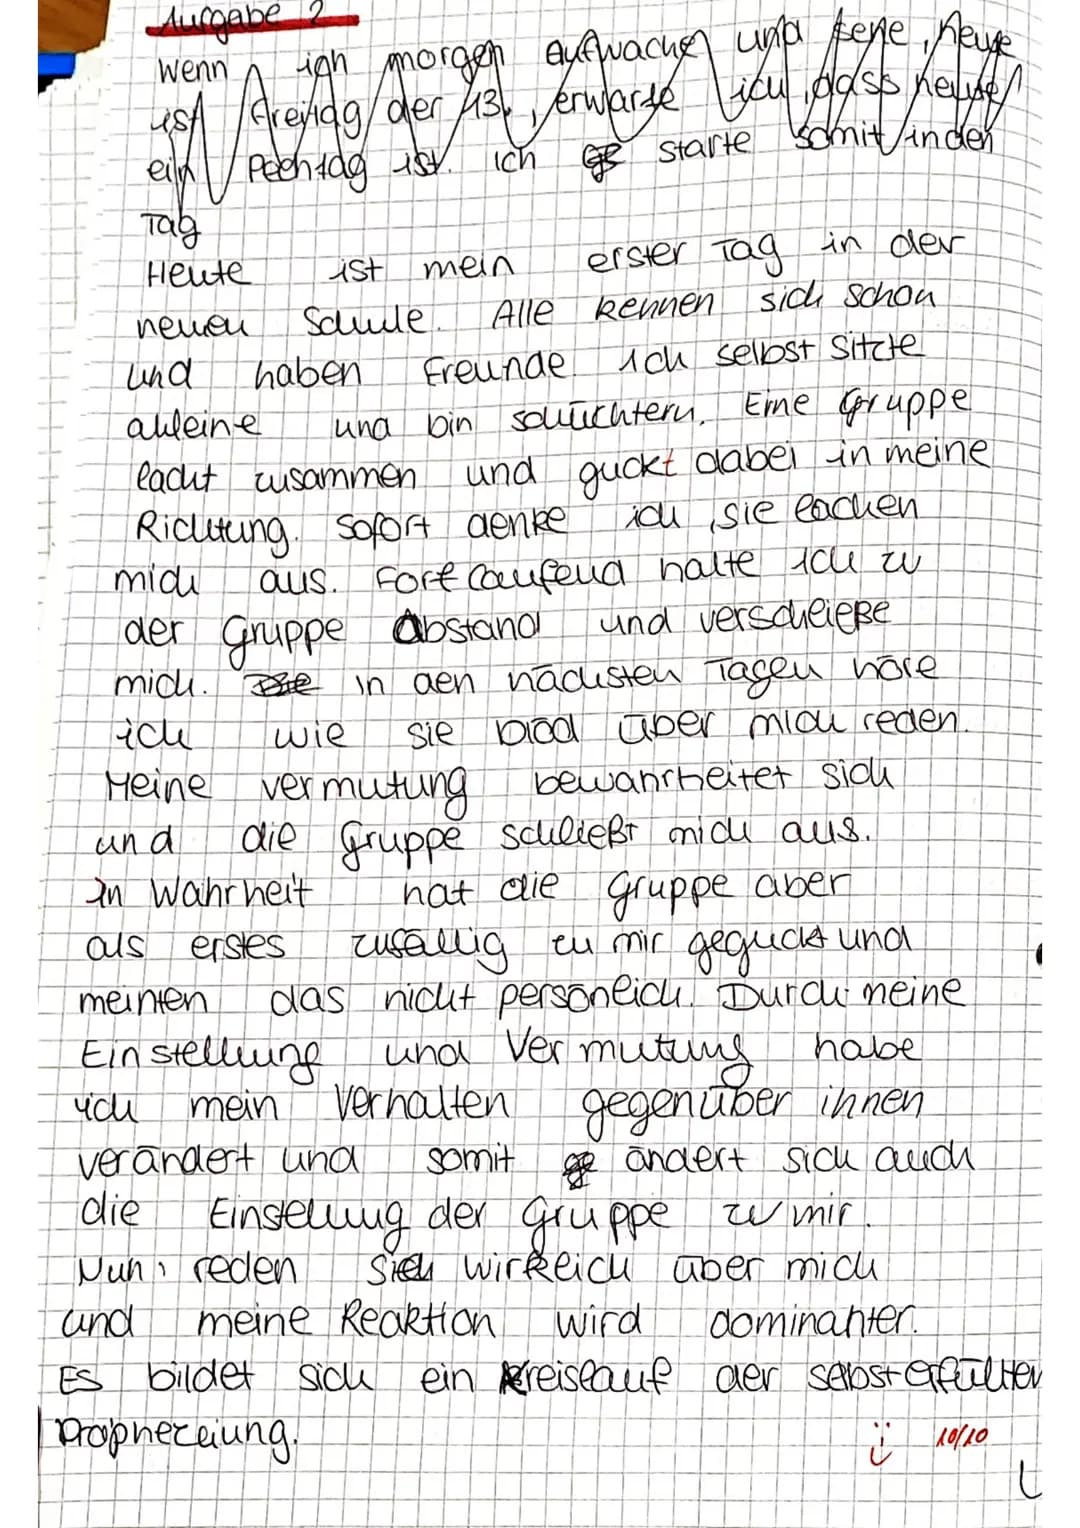 Aufgabe 2
Wenn ich morgen aufwache und sehe, heute
ist Freitag der 13., erwarte ich, dass heute
ein Pechtag ist. Ich starte somit in den
Tag
Heute ist mein erster Tag in der
neuen Schule. Alle kennen sich schon
und haben Freunde. Ich selbst sitzte
alleine und bin schüchtern. Eine Gruppe
lacht zusammen und guckt dabei in meine
Richtung. Sofort denke ich, sie lachen
mich aus. Fortlaufend halte ich zu
der Gruppe Abstand und verschließe
mich. In den nächsten Tagen höre
ich wie sie blöd über mich reden.
Meine Vermutung bewahrheitet sich
und die Gruppe schließt mich aus.
In Wahrheit hat die Gruppe aber
als erstes zufällig zu mir geguckt und
meinten das nicht persönlich. Durch meine
Einstellung und Vermutung habe
ich mein Verhalten gegenüber ihnen
verändert und somit ändert sich auch
die Einstellung der Gruppe zu mir.
Nun reden sie wirklich über mich
und meine Reaktion wird dominanter.
Es bildet sich ein Kreislauf der selbsterfüllten
Prophezeiung.
10/10